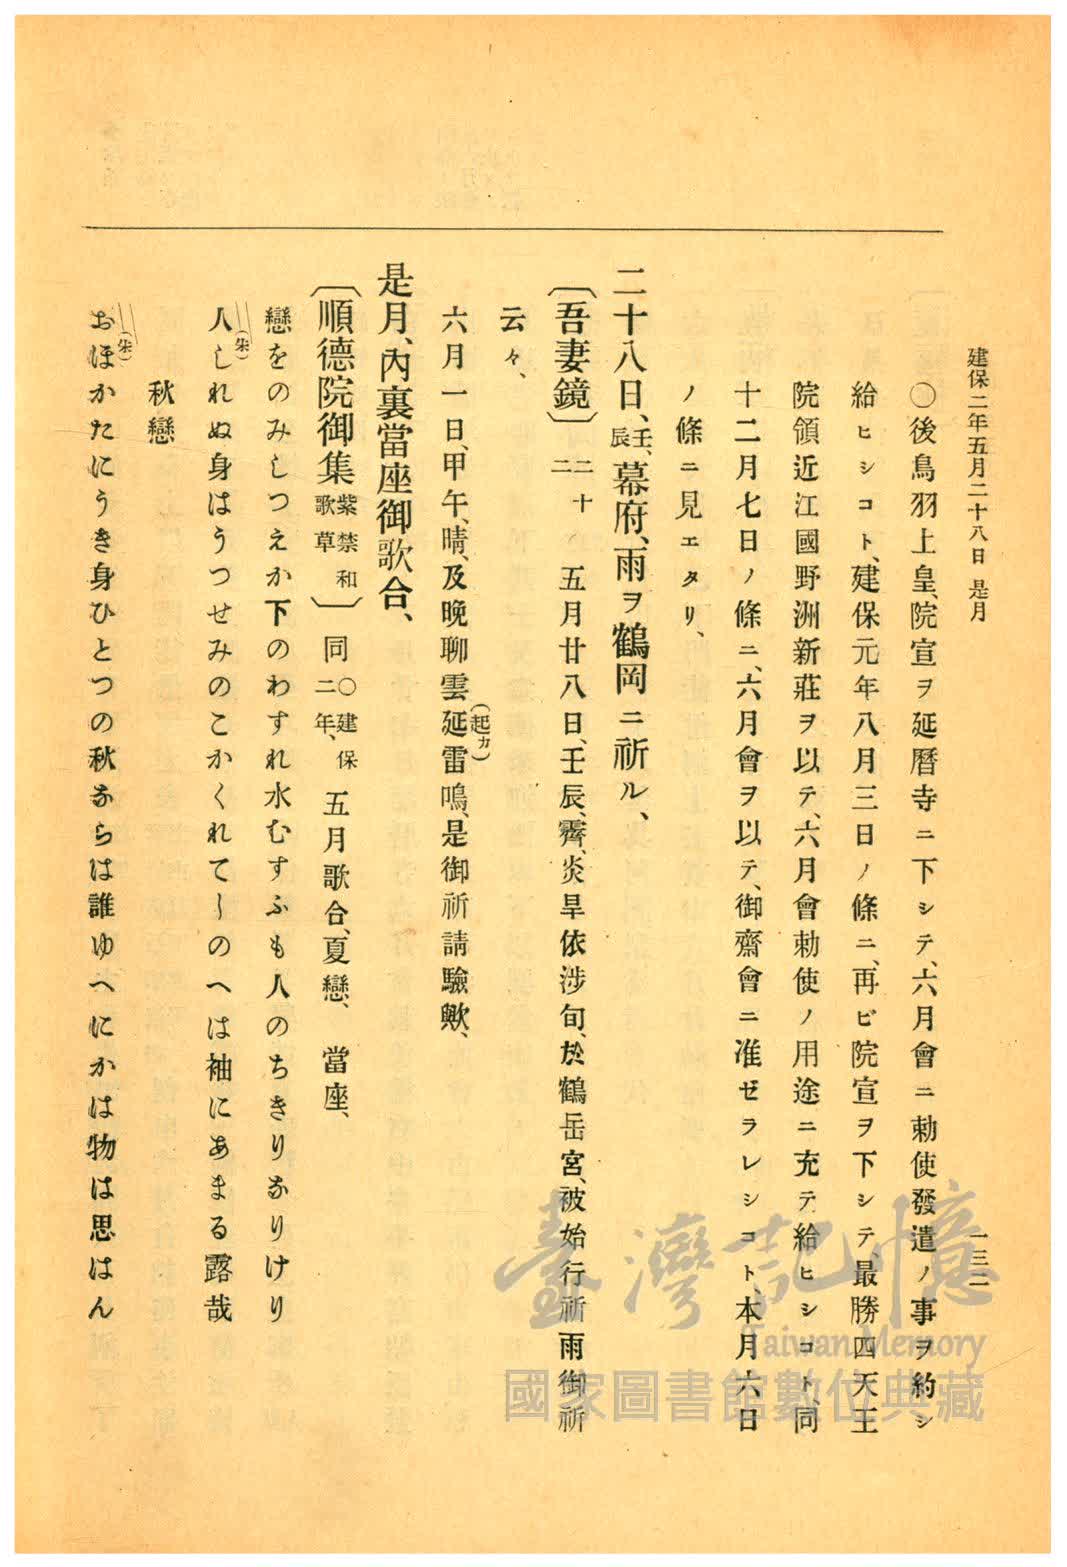 建保二年五月二十八日 是月
一三二
〇後鳥羽上皇、院宣ヲ延曆寺ニ下シテ、六月會ニ勅使發遣ノ事ヲ約シ
給ヒシコト、建保元年八月三日ノ條ニ、再ビ院宣ヲ下シテ、最勝四天王
院領近江國野洲新莊ヲ以テ、六月會勅使ノ用途ニ充テ給ヒシコト、同
十二月七日ノ條ニ、六月會ヲ以テ、御齋會ニ准ゼラレシコト、本月六日
ノ條ニ見エタリ、
二十八日、壬辰、幕府、雨ヲ鶴岡ニ祈ル、
〔吾妻鏡〕二十二 〇五月廿八日、壬辰、霽、炎旱依涉旬、於鶴岳宮、被始行祈雨御祈
云々、
六月一日、甲午、晴、及晩聊雲延(起カ)雷鳴、是御祈請驗歟、
是月、內裏當座御歌合、
〔順德院御集〕紫禁和歌草 同〇建保二年、五月歌合、夏戀、當座、
戀をのみしつえか下のわすれ水むすふも人のちきりなりけり
人しれぬ身はうつせみのこかくれてしのへは袖にあまる露哉
秋戀
おほかたにうき身ひとつの秋ならは誰ゆへにかは物は思はん
臺灣記憶
Taiwan Memory
國家圖書館數位典藏